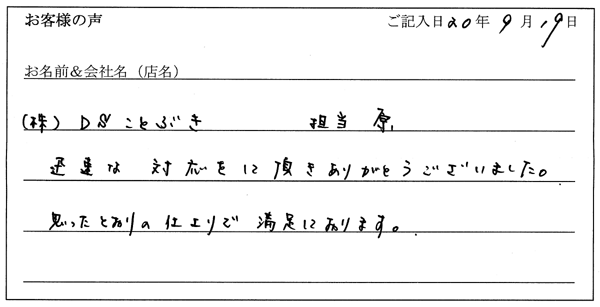 お客様の声 ご記入日20年9月19日
お名前&会社名（店名）
(株) DSことぶき 担当 原
迅速な対応をして頂きありがとうございました。
思ったとおりの仕上りで満足しております。